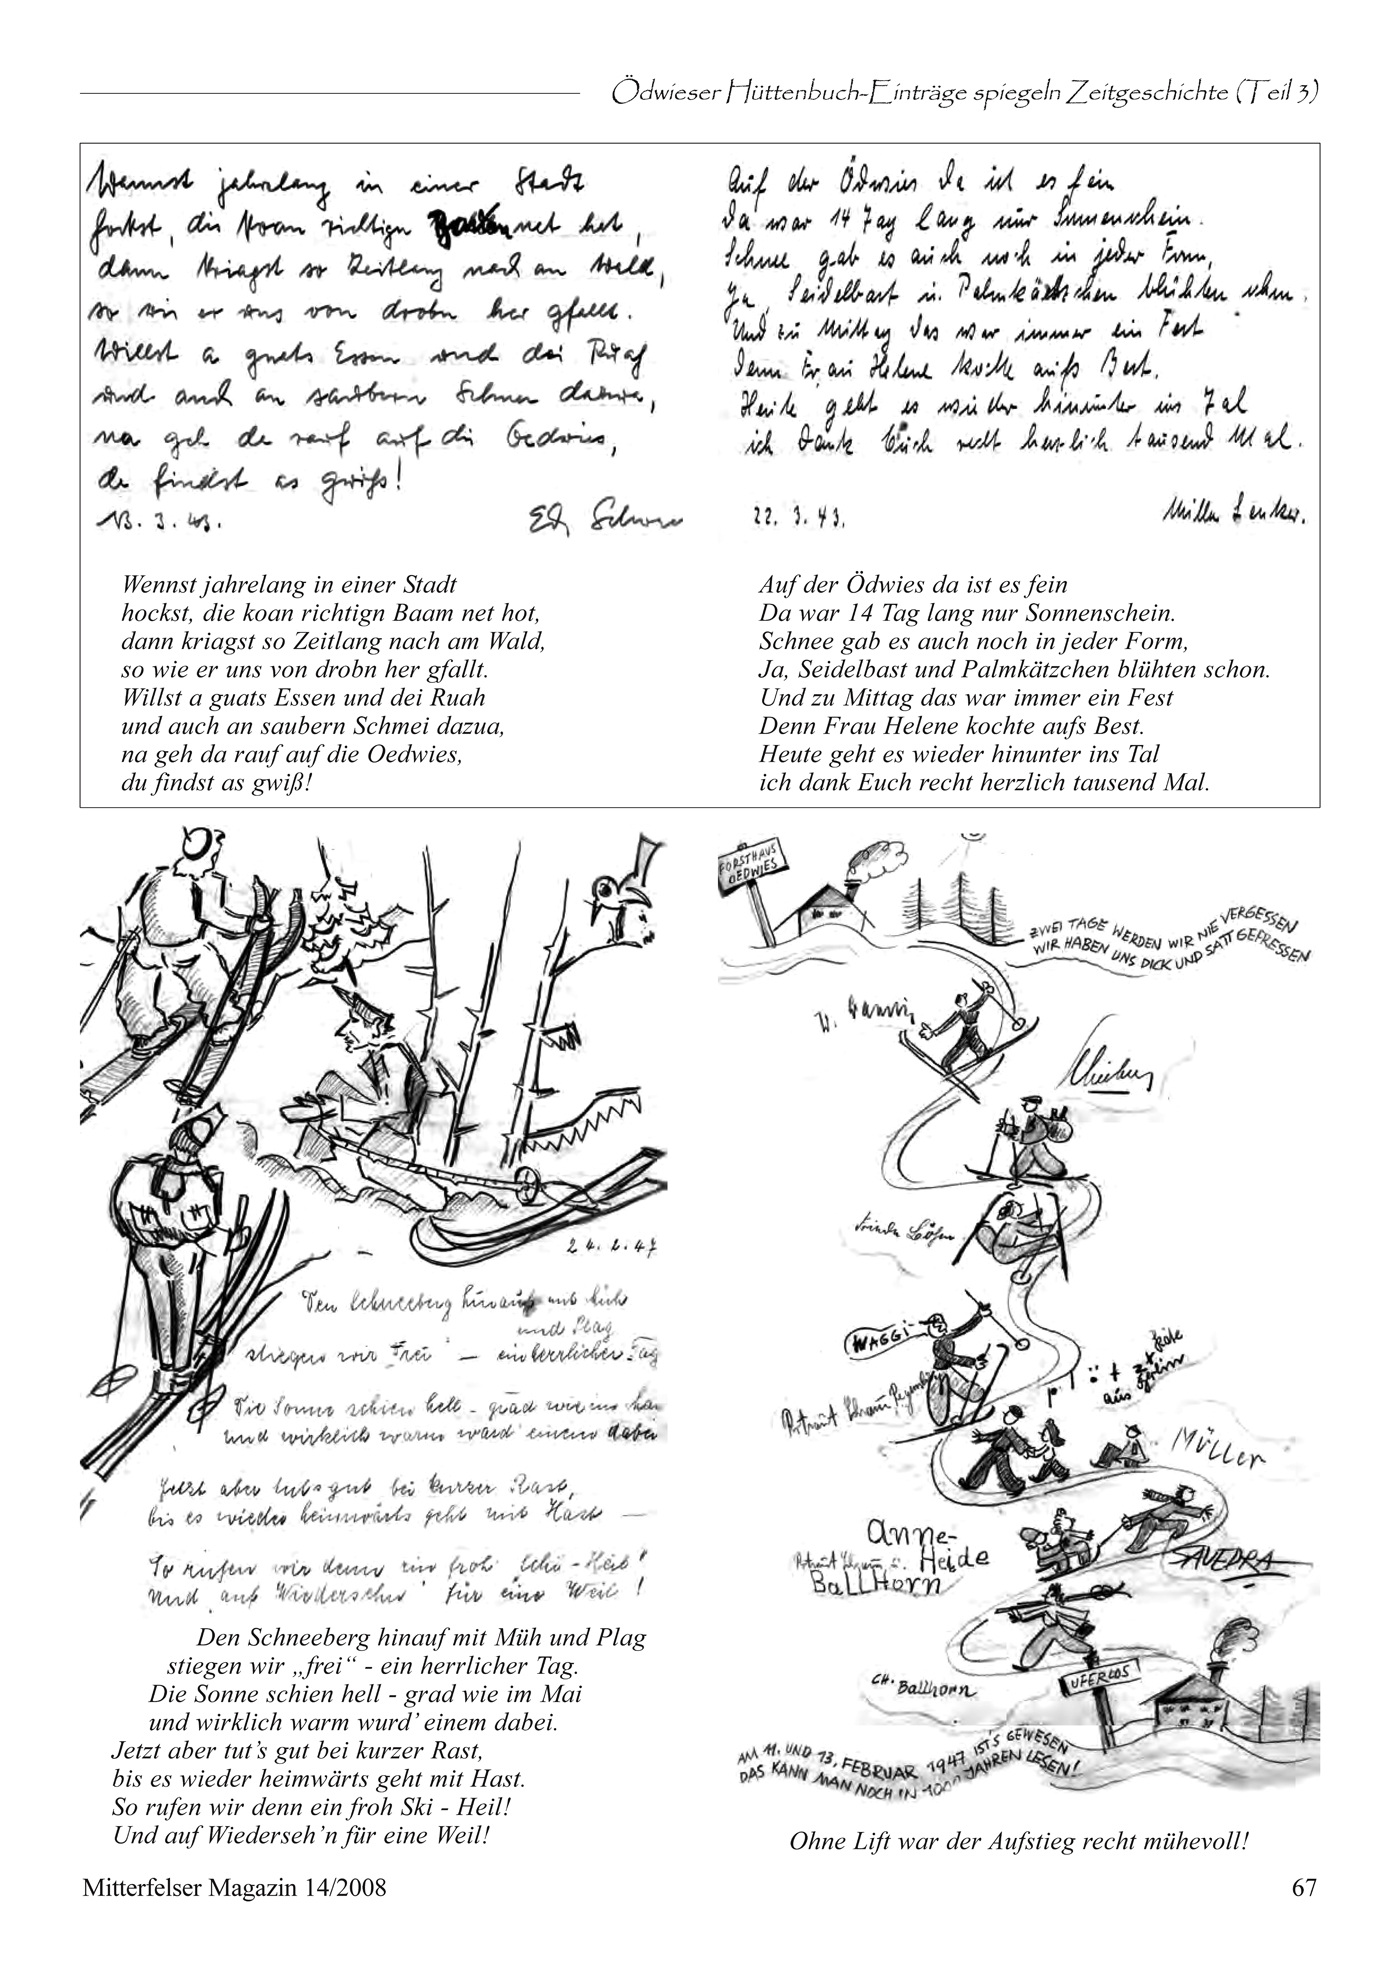 Ödwieser Hüttenbuch-Einträge spiegeln Zeitgeschichte (Teil 3)
Wennst jahrelang in einer Stadt
hockst, die koan richtign Baam net hot,
dann kriagst so Zeitlang nach am Wald,
so wie er uns von drobn her gfallt.
Willst a guats Essen und dei Ruah
und auch an saubern Schnee dazua,
na geh da rauf auf die Oedwies,
da findst as gwiß!
13. 3. 43.
Auf der Ödwies da ist es fein
Da war 14 Tag lang nur Sonnenschein.
Schnee gab es auch noch in jeder Form,
Ja, Seidelbast u. Palmkätzchen blühten schon.
Und zu Mittag das war immer ein Fest
Denn Frau Helene kochte aufs Best.
Heute geht es wieder hinunter ins Tal
ich dank Euch recht herzlich tausend Mal.
22. 3. 43.
Wennst jahrelang in einer Stadt
hockst, die koan richtign Baam net hot,
dann kriagst so Zeitlang nach am Wald,
so wie er uns von drobn her gfallt.
Willst a guats Essen und dei Ruah
und auch an saubern Schmei dazua,
na geh da rauf auf die Oedwies,
du findst as gwiß!
Auf der Ödwies da ist es fein
Da war 14 Tag lang nur Sonnenschein.
Schnee gab es auch noch in jeder Form,
Ja, Seidelbast und Palmkätzchen blühten schon.
Und zu Mittag das war immer ein Fest
Denn Frau Helene kochte aufs Best.
Heute geht es wieder hinunter ins Tal
ich dank Euch recht herzlich tausend Mal.
24. 2. 47
Den Schneeberg hinauf mit Müh
und Plag
stiegen wir "frei" – ein herrlicher Tag
Die Sonne schien hell – grad wie im Mai
und wirklich warm ward einem dabei
Jetzt aber tut's gut bei kurzer Rast,
bis es wieder heimwärts geht mit Hast —
So rufen wir denn ein froh Schi-Heil!
Und auf Wiedersehn für eine Weil!
Den Schneeberg hinauf mit Müh und Plag
stiegen wir „frei“ - ein herrlicher Tag.
Die Sonne schien hell - grad wie im Mai
und wirklich warm wurd’ einem dabei.
Jetzt aber tut’s gut bei kurzer Rast,
bis es wieder heimwärts geht mit Hast.
So rufen wir denn ein froh Ski - Heil!
Und auf Wiederseh’n für eine Weil!
FORSTHAUS
OEDWIES
ZWEI TAGE WERDEN WIR NIE VERGESSEN
WIR HABEN UNS DICK UND SATT GEFRESSEN
WAGGI
aus Berlin
MÜLLER
ANNE-
HEIDE
BALLHORN
SAVEDRA
CH. Ballhorn
UFERLOS
AM 11. UND 13. FEBRUAR 1947 IST'S GEWESEN
DAS KANN MAN NOCH IN 1000 JAHREN LESEN!
Ohne Lift war der Aufstieg recht mühevoll!
Mitterfelser Magazin 14/2008
67